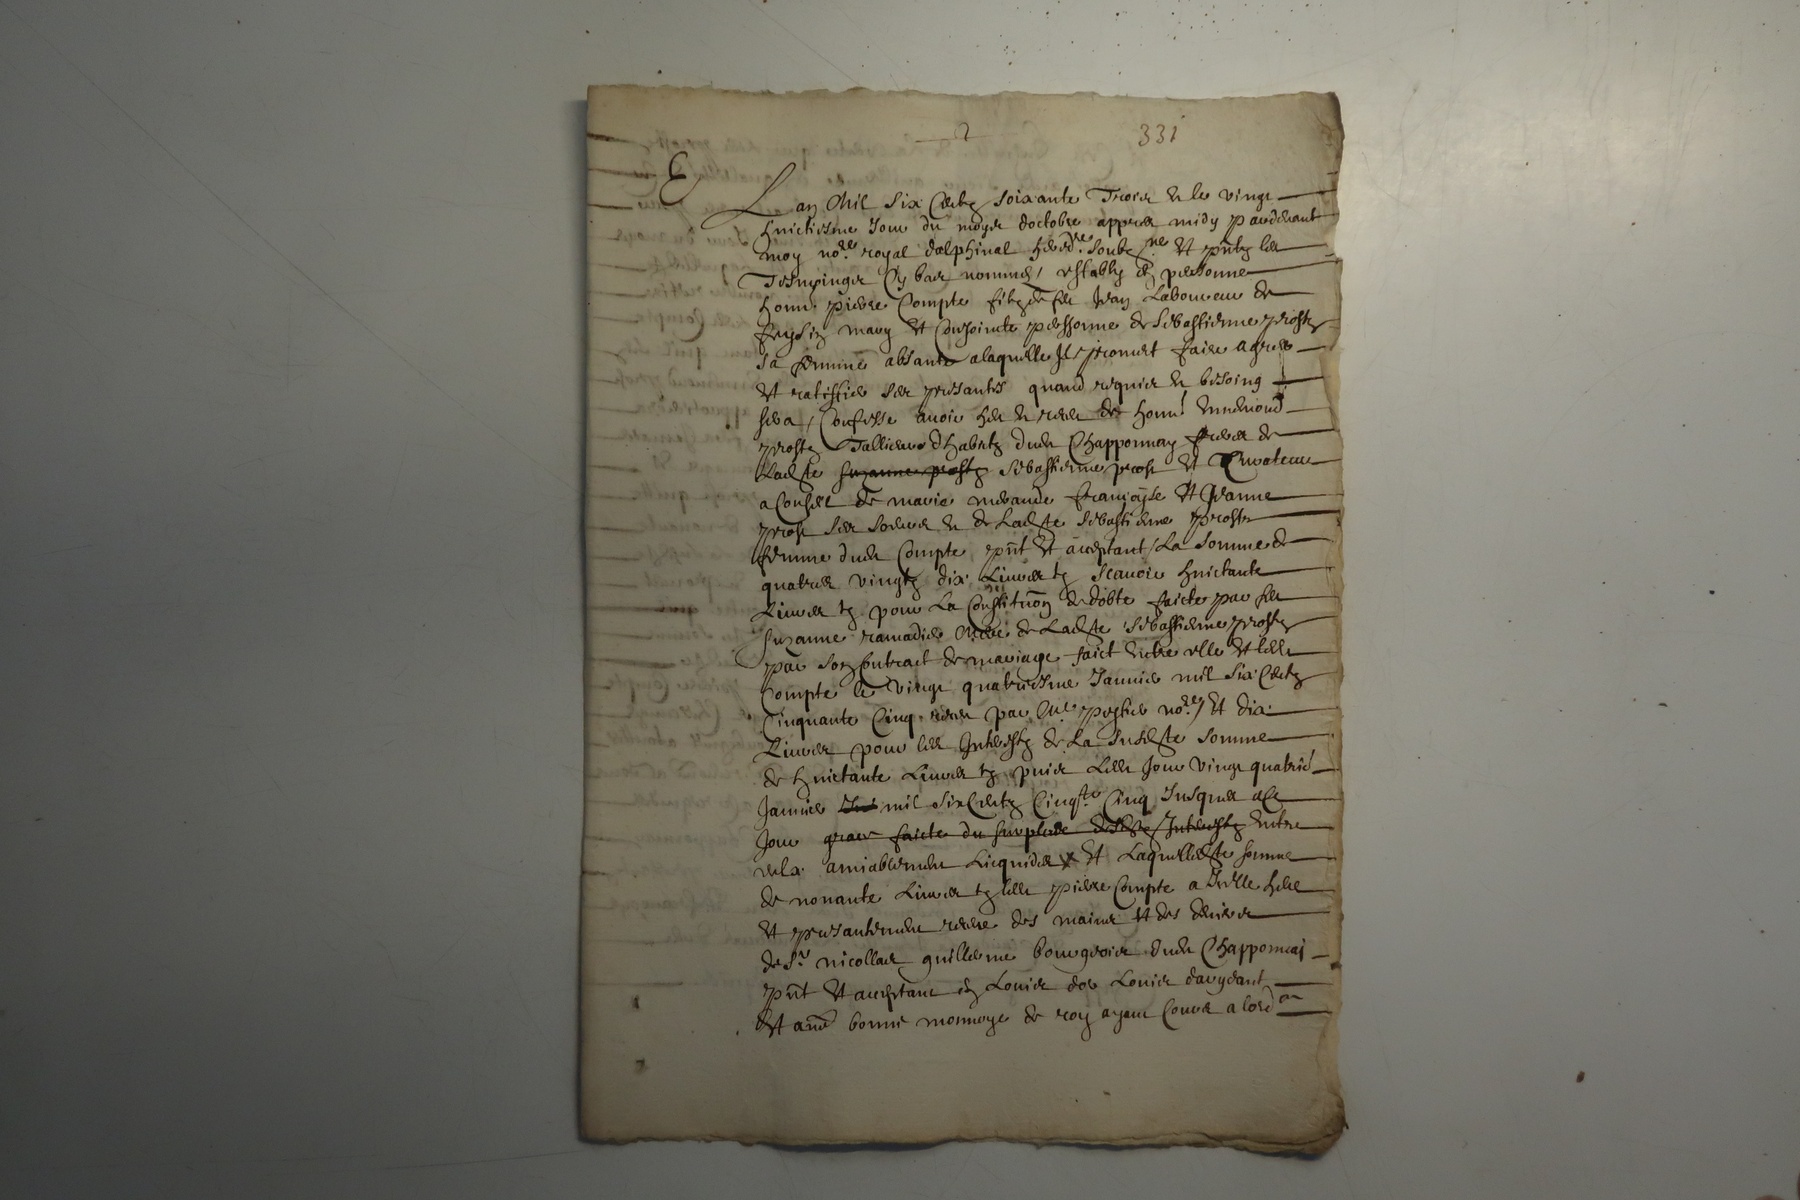 2
331
E
Lan Mil Six Centz Soixante Trois & le vingt
huictiesme Jour du moys doctobre appres midy pardevant
moy no.re royal dalphinal hered.re soubz.ne et pntz les
Tesmoinges Cy bas nommes / establiz en personne
honn. pierre Compte filz de feu Jean Laboureur de
mary et Conjoincte personne de Sebastienne prost
Sa femme absante a laquelle Il promet faire agreer
et ratiffier ses presantes quand requier & besoing
sera / Confesse avoir heu & receu de honn. Ennemond
prost Tallieur dhabitz dudt Chapponnay frere de
Ladte Suzanne prost Sebastienne prost et Curateur
a Conseil de marie meraude francoyse et Jeanne
prost ses soeurs & de Ladte Sebastienne prost
femme dudt Compte pnt et acceptant / La Somme de
quatres vingtz dix Livres tz scavoir huictante
Livres tz pour La Constitu͠on de dobte faicte par feu
Suzanne ramadier Mere de Ladte Sebastienne prost
par son Contract de mariage faict entre elle et ledt
Compte le vingt quatriesme Janvier mil six Centz
Cinquante Cinq receu par Me no.re / et dix
Livres pour les Interestz de La Susdte somme
de huictante Livres tz puis Ledt Jour vingt quatrie
Janvier mil six Centz Cinq.te Cinq Jusques a Ce
Jour grace faicte du surplus desdts Interestz entre
eulx amiablement Licquides x et Laquelledte somme
de nonante Livres tz ledt pierre Compte a Icelle heue
et presantement receue des mains et des deniers
de Sr nicollas guillerme bourgeois dudt Chapponnai
pnt et acceptant en Louis dor Louis dargeant
et au.e bonne monnoye de roy ayant Cours a lord.on